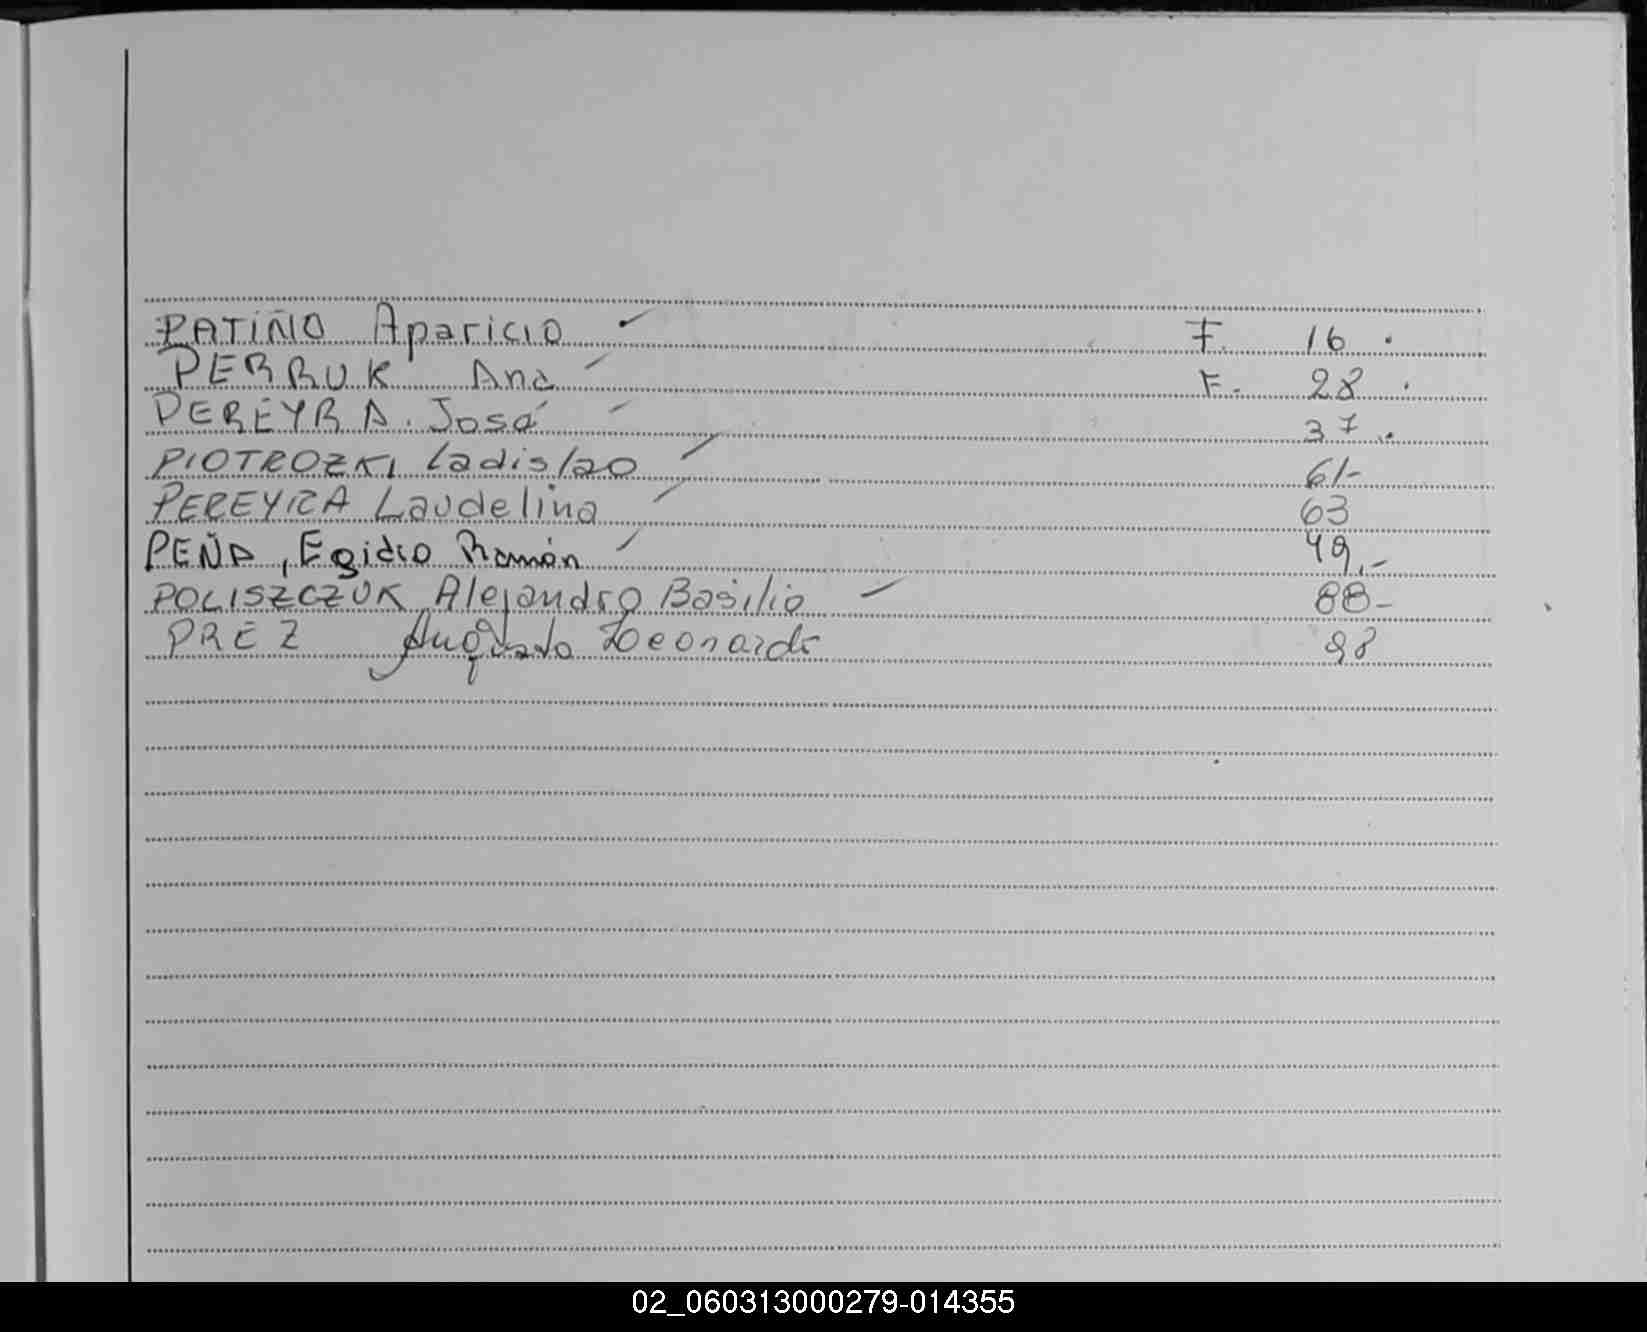 PATIÑO Aparicio F. 16 .
PERRUK Ana F. 28 .
PEREYRA. José 37 .
PIOTROZKI Ladislao 61-
PEREYRA Laudelina 63
PEÑA, Egidio Ramón 49,-
POLISZCZUK Alejandro Basilio 88-
PREZ Augusto Leonardo 98
02_060313000279-014355